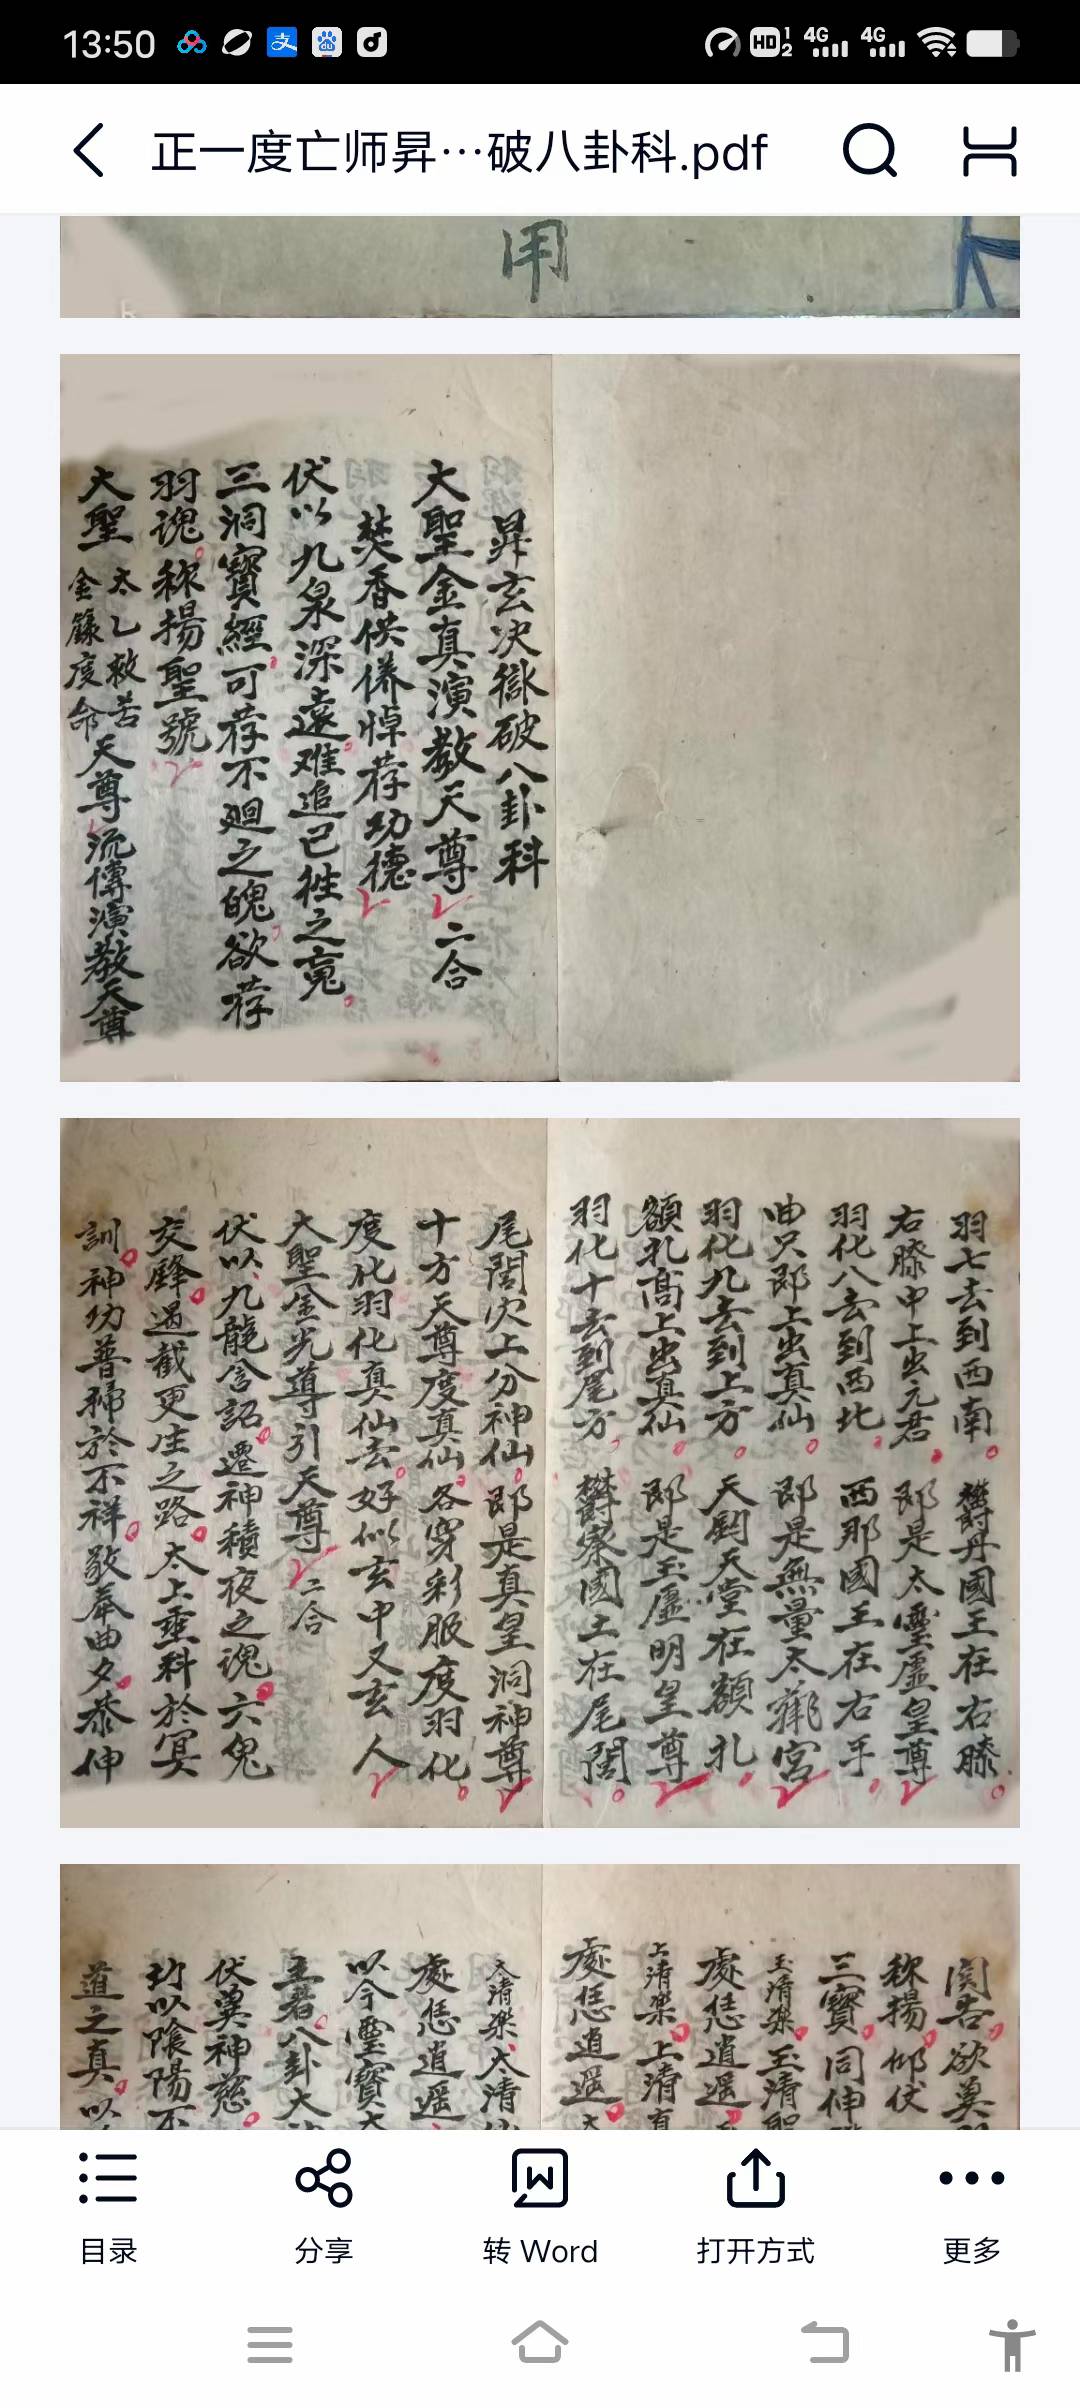 13:50
HD 1 2 4G 4G
正一度亡师昇…破八卦科.pdf
用
昇玄决獄破八卦科
大聖金真演教天尊 二合
焚香供養悼荐功德
伏以九泉深遠难追已徃之䰟
三洞寶經可荐不廻之魄欲荐
羽魂称揚聖號
大聖 太乙救苦 金籙度命 天尊 流傳演教天尊
羽七去到西南 欝丹國王在右膝
右膝中上出元君 郎是太靈虛皇尊
羽化八去到西北 西那國王在右手
曲只郎上出真仙 郎是無量太 宮
羽化九去到上方 天劉天堂在額扎
額扎高上出真仙 郎是玉虛明皇尊
羽化十去到尾方 欝察國土在尾閭
尾閭穴上分神仙 郎是真皇洞神尊
十方天尊度真仙 各穿彩服度羽化
度化羽化真仙去 好似玄中又玄人
大聖金光導引天尊 二合
伏以九龍含詔遷神積夜之魂六鬼
交鋒過截更生之路太上垂科於冥
訓神功普掃於不祥敬奉曲夕恭伸
関告欲奠
称揚仰伏
三寶同伸
玉清樂玉清聖
處恁逍遥
上清樂上清真
處恁逍遥
太清樂太清仙
處恁逍遥
以今靈寶大
主者八卦大
伏冀神慈
玓以陰陽不
道之真以
目录
分享
转 Word
打开方式
更多